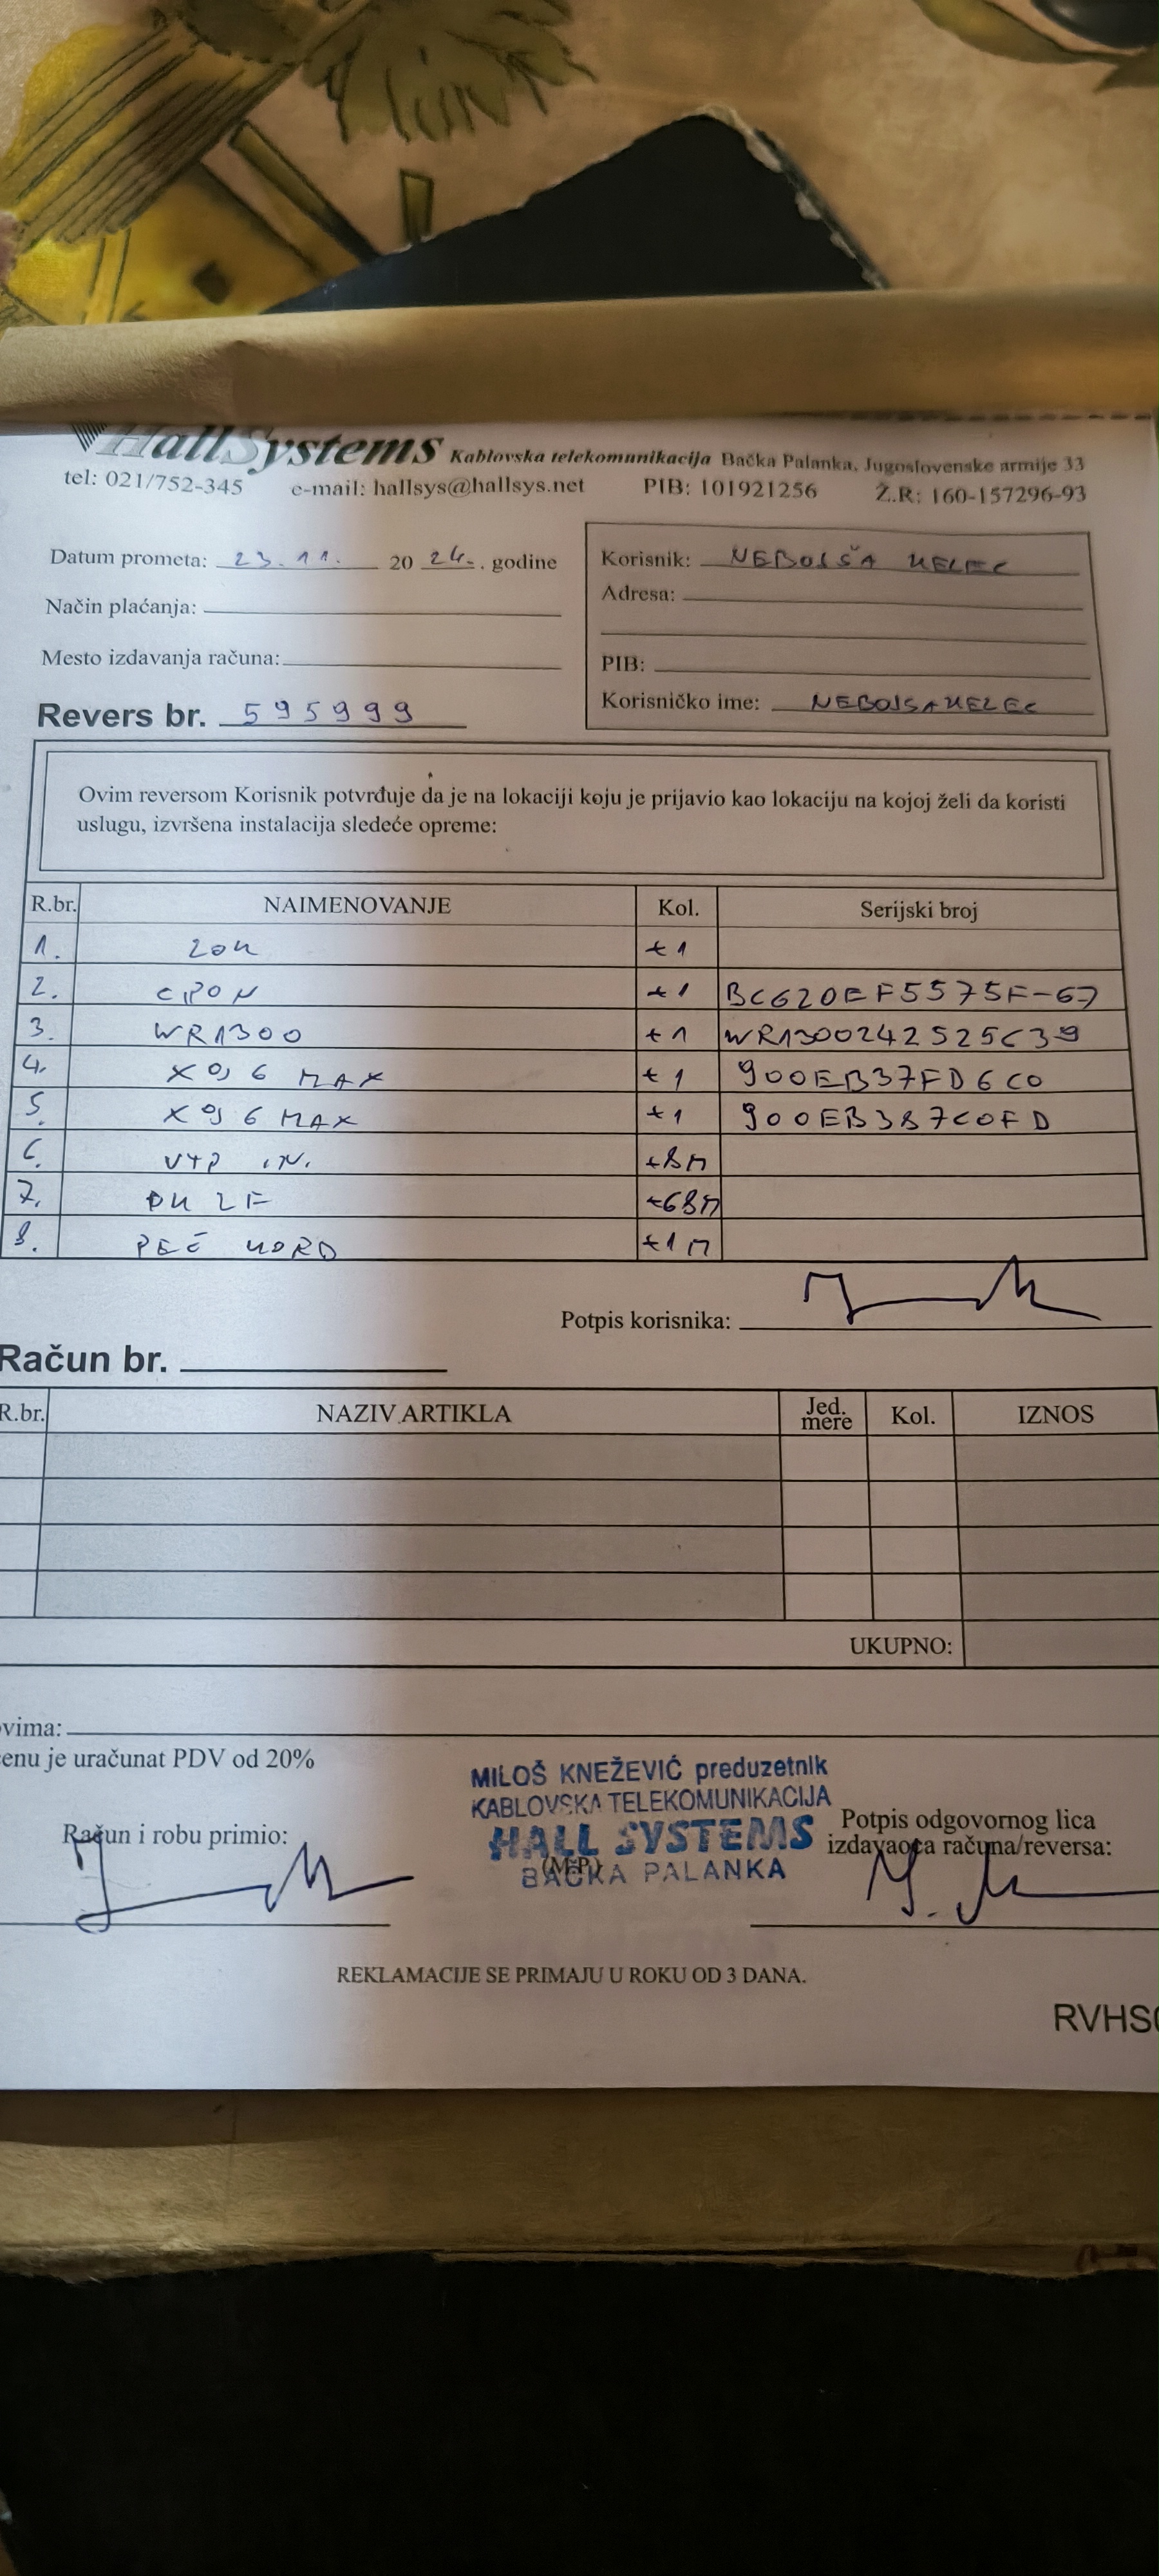 HallSystems Kablovska telekomunikacija Bačka Palanka, Jugoslovenske armije 33
tel: 021/752-345 e-mail: hallsys@hallsys.net PIB: 101921256 Ž.R: 160-157296-93
Datum prometa: 23.11. 2024. godine
Način plaćanja:
Mesto izdavanja računa:
Revers br. 595999
Korisnik: NEBOJŠA KELEC
Adresa:
PIB:
Korisničko ime: NEBOJSAKELEC
Ovim reversom Korisnik potvrđuje da je na lokaciji koju je prijavio kao lokaciju na kojoj želi da koristi
uslugu, izvršena instalacija sledeće opreme:
R.br. NAIMENOVANJE Kol. Serijski broj
1. ZOK +1
2. EPON +1 BC620EF5575F-67
3. WR1300 +1 WR1300242525C39
4. MAX +1 900EB37FD6C0
5. MAX +1 900EB387C0FD
6. UTP IN. +8M
7. OK 2F +68M
8. +1M
Potpis korisnika:
Račun br.
R.br. NAZIV ARTIKLA Jed. mere Kol. IZNOS
UKUPNO:
ovima:
enu je uračunat PDV od 20%
MILOŠ KNEŽEVIĆ preduzetnik
KABLOVSKA TELEKOMUNIKACIJA
HALL SYSTEMS
BAČKA PALANKA
(M.P.)
Račun i robu primio:
Potpis odgovornog lica
izdavaoca računa/reversa:
REKLAMACIJE SE PRIMAJU U ROKU OD 3 DANA.
RVHS